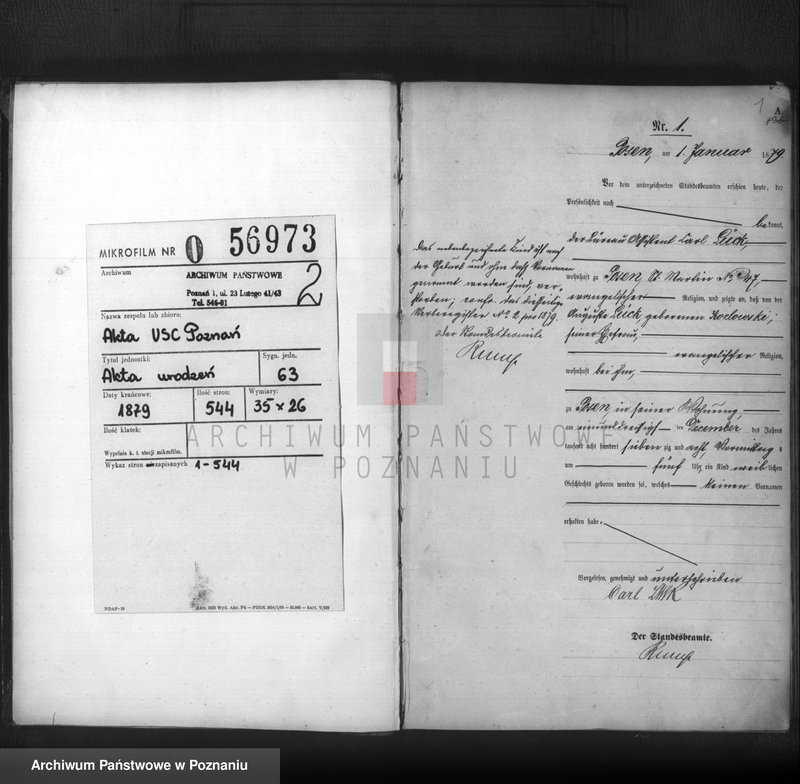 MIKROFILM NR 0 56973
Archiwum
ARCHIWUM PAŃSTWOWE
Poznań 1, ul. 23 Lutego 41/43
Tel. 546-01
2
Nazwa zespołu lub zbioru:
Akta USC Poznań
Tytuł jednostki:
Akta urodzeń
Sygn. jedn.
63
Daty krańcowe:
1879
Ilość stron:
544
Wymiary:
35 x 26
Ilość klatek:
Wypełnia k. t. stacji mikrofilm.
Wykaz stron zapisanych 1-544
1
A.
Nr. 1.
Posen, am 1. Januar 1879
Vor dem unterzeichneten Standesbeamten erschien heute, der
Persönlichkeit nach
bekannt,
der Bureau Assistent Carl Lück,
wohnhaft zu Posen, St. Martin No 47,
evangelischer Religion, und zeigte an, daß von der
Auguste Lück, geborenen Kozlowski,
seiner Ehefrau,
evangelischer Religion,
wohnhaft bei ihm,
zu Posen, in seiner Wohnung,
am einunddreißigsten December des Jahres
tausend acht hundert siebenzig und acht, Vormittags
um fünf Uhr ein Kind weiblichen
Geschlechts geboren worden sei, welches keinen Vornamen
erhalten habe.
Vorgelesen, genehmigt und unterschrieben
Carl Lück
Der Standesbeamte.
Das nebenbezeichnete Kind ist nach
der Geburt und ohne daß Vornamen
genannt worden sind, ver-
storben, das diesseitige
Sterberegister No 2 pro 1879.
Der Standesbeamte
ARCHIWUM PAŃSTWOWE
W POZNANIU
Archiwum Państwowe w Poznaniu